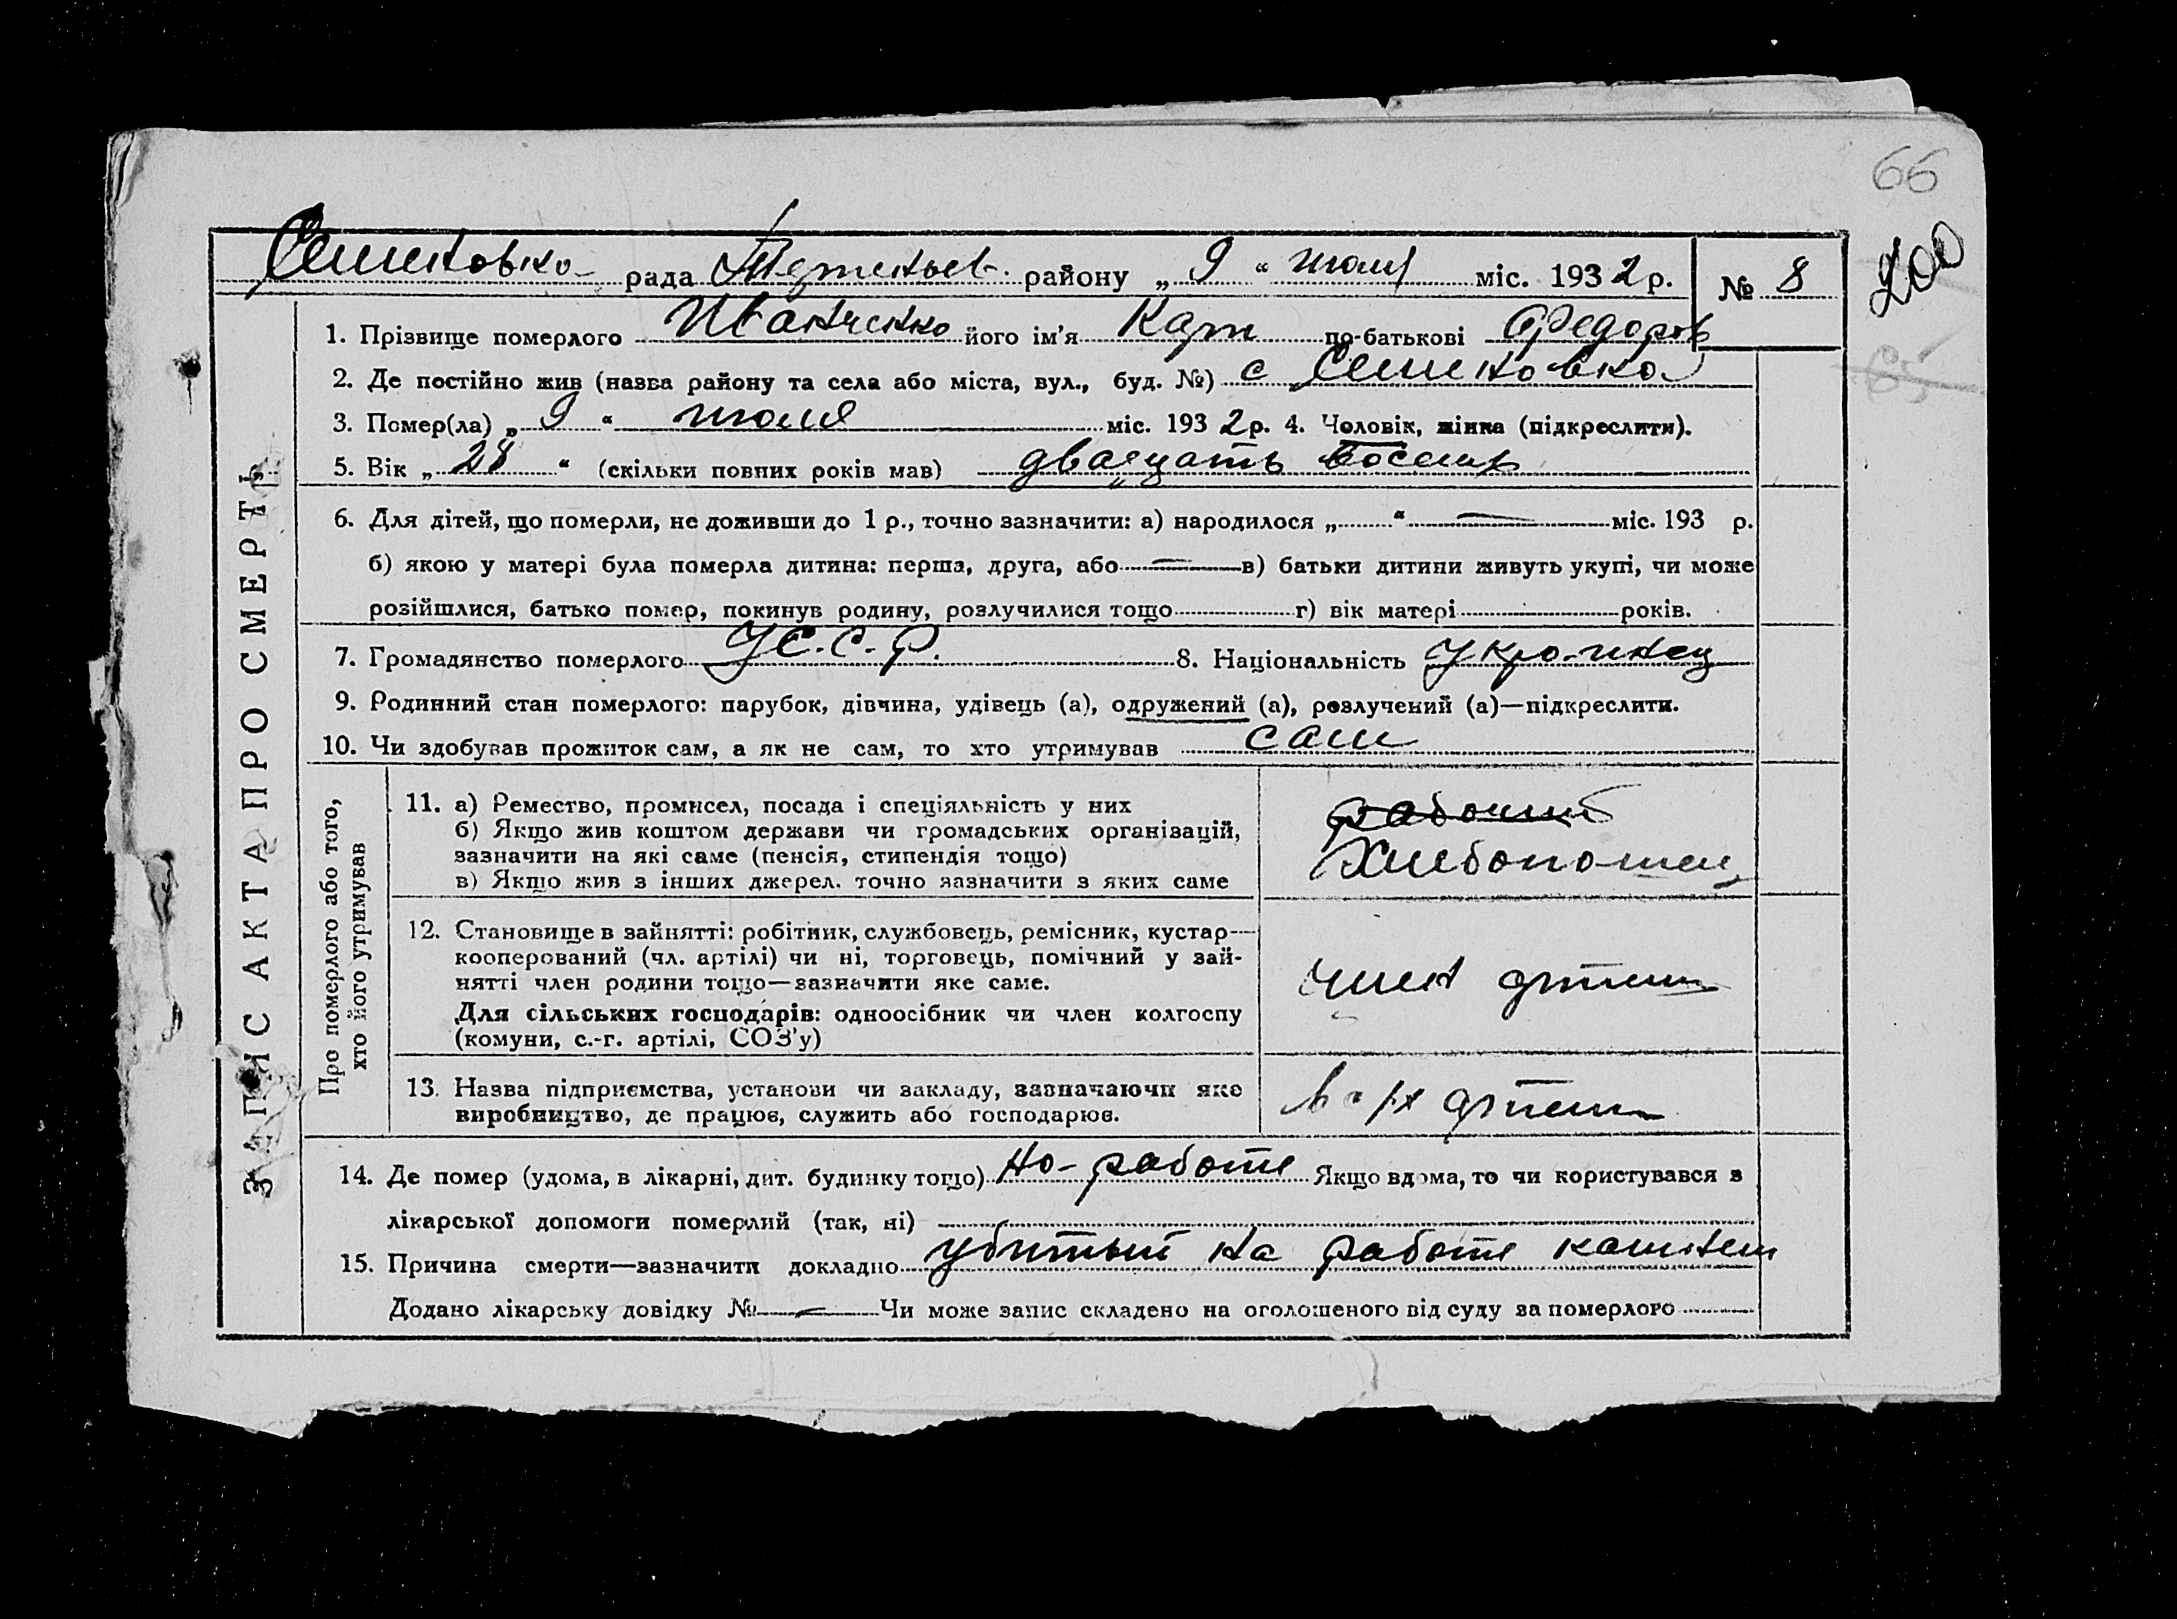 66
200
Семиковка рада района „ 9 “ июля міс. 1932 р. № 8
ЗАПИС АКТА ПРО СМЕРТЬ
1. Прізвище померлого Иванченко його ім'я Карп по-батькові Федоров
2. Де постійно жив (назва району та села або міста, вул., буд. №) с Семиковка
3. Помер(ла) „ 9 “ июля міс. 1932 р. 4. Чоловік, жінка (підкреслити).
5. Вік „ 28 “ (скільки повних років мав) двадцать восемь
6. Для дітей, що померли, не доживши до 1 р., точно зазначити: а) народилося „ “ — міс. 193 р.
б) якою у матері була померла дитина: перша, друга, або — в) батьки дитини живуть укупі, чи може
розійшлися, батько помер, покинув родину, розлучилися тощо г) вік матері років.
7. Громадянство померлого У.С.С.Р. 8. Національність украинец
9. Родинний стан померлого: парубок, дівчина, удівець (а), одружений (а), розлучений (а)—підкреслити.
10. Чи здобував прожиток сам, а як не сам, то хто утримував сам
Про померлого або того,
хто його утримував
11. а) Ремество, промисел, посада і спеціяльність у них
б) Якщо жив коштом держави чи громадських організацій,
зазначити на які саме (пенсія, стипендія тощо)
в) Якщо жив з інших джерел. точно зазначити з яких саме
рабочий
Хлебопашец
12. Становище в зайнятті: робітник, службовець, ремісник, кустар—
кооперований (чл. артілі) чи ні, торговець, помічний у зай-
нятті член родини тощо—зазначити яке саме.
Для сільських господарів: одноосібник чи член колгоспу
(комуни, с.-г. артілі, СОЗ'у)
член артели
13. Назва підприємства, установи чи закладу, зазначаючи яке
виробництво, де працює, служить або господарює.
в с/х артели
14. Де помер (удома, в лікарні, дит. будинку тощо) на работе Якщо вдома, то чи користувався з
лікарської допомоги померлий (так, ні)
15. Причина смерти—зазначити докладно убитый на работе камнем
Додано лікарську довідку № — Чи може запис складено на оголошеного від суду за померлого